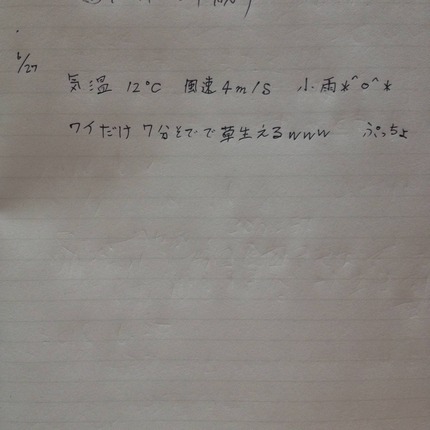 6/27
気温 12℃ 風速4m/s 小雨*^o^*
ワイだけ 7分そでで草生えるwww ぷっちょ